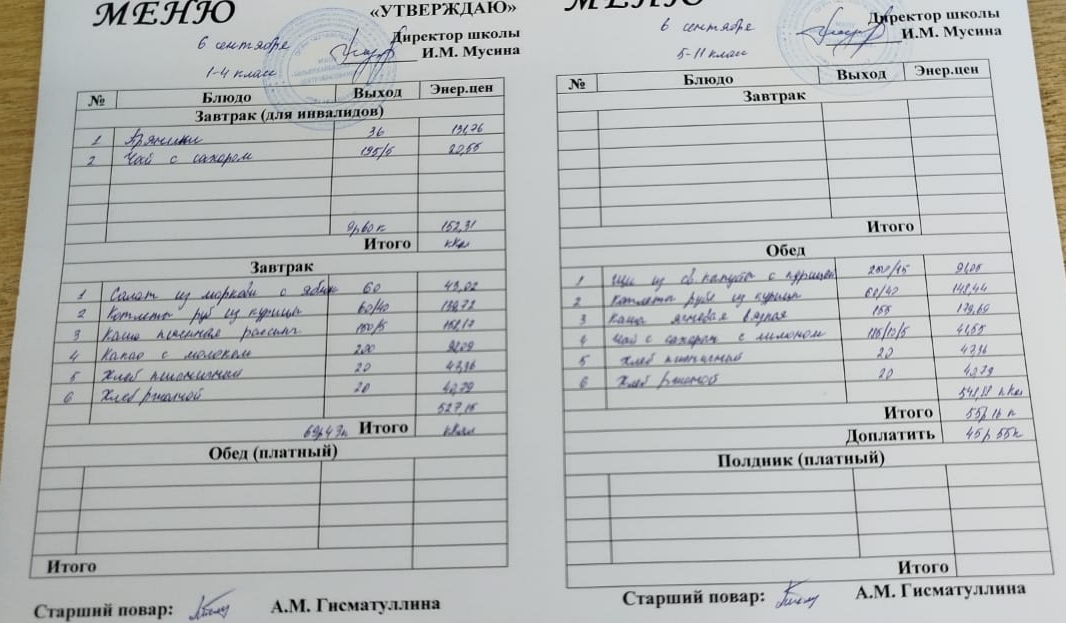 МЕНЮ
«УТВЕРЖДАЮ»
Директор школы
6 сентября
И.М. Мусина
1-4 класс
№ Блюдо Выход Энер.цен
Завтрак (для инвалидов)
1 Пряники 36 131,76
2 Чай с сахаром 195/5
9р60к 152,31
Итого ккал
Завтрак
1 Салат из моркови с 60
2 Котлета руб из курицы 60/40
3 Каша пшенная 150/5
4 Какао с молоком 200
5 Хлеб пшеничный 20
6 Хлеб ржаной 20
527,15
69р43к Итого ккал
Обед (платный)
Итого
Старший повар: А.М. Гисматуллина
МЕНЮ
Директор школы
6 сентября
И.М. Мусина
5-11 класс
№ Блюдо Выход Энер.цен
Завтрак
Итого
Обед
1 Щи из св капусты с курицей
2 Котлета руб из курицы 60/40 148,44
3 Каша ячневая вязкая 155
4 Чай с сахаром с лимоном 41,55
5 Хлеб пшеничный 20
6 Хлеб ржаной 20
ккал
Итого 55р 16 к
Доплатить 45р 55к
Полдник (платный)
Итого
Старший повар: А.М. Гисматуллина